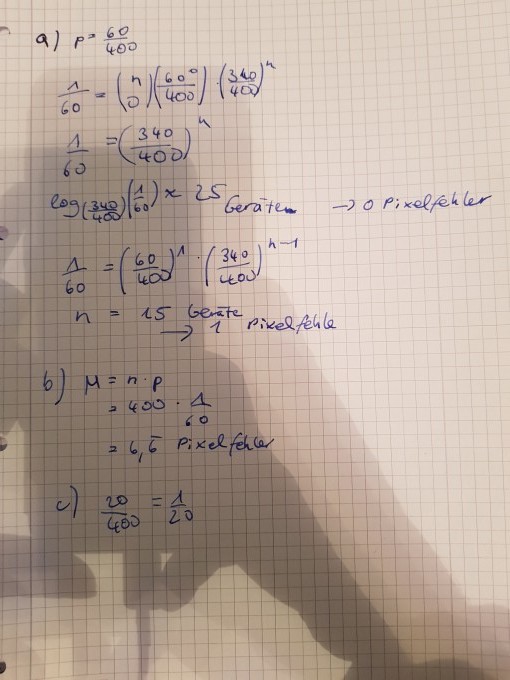 a) p = 60/400
1/60 = (n 0) (60/400)⁰ · (340/400)ⁿ
1/60 = (340/400)ⁿ
log(340/400) (1/60) ≈ 25 Geräten → 0 Pixelfehler
1/60 = (60/400)¹ · (340/400)ⁿ⁻¹
n = 15 Geräte
→ 1 Pixelfehle
b) μ = n · p
= 400 · 1/60
= 6,6̅ Pixelfehler
c) 20/400 = 1/20